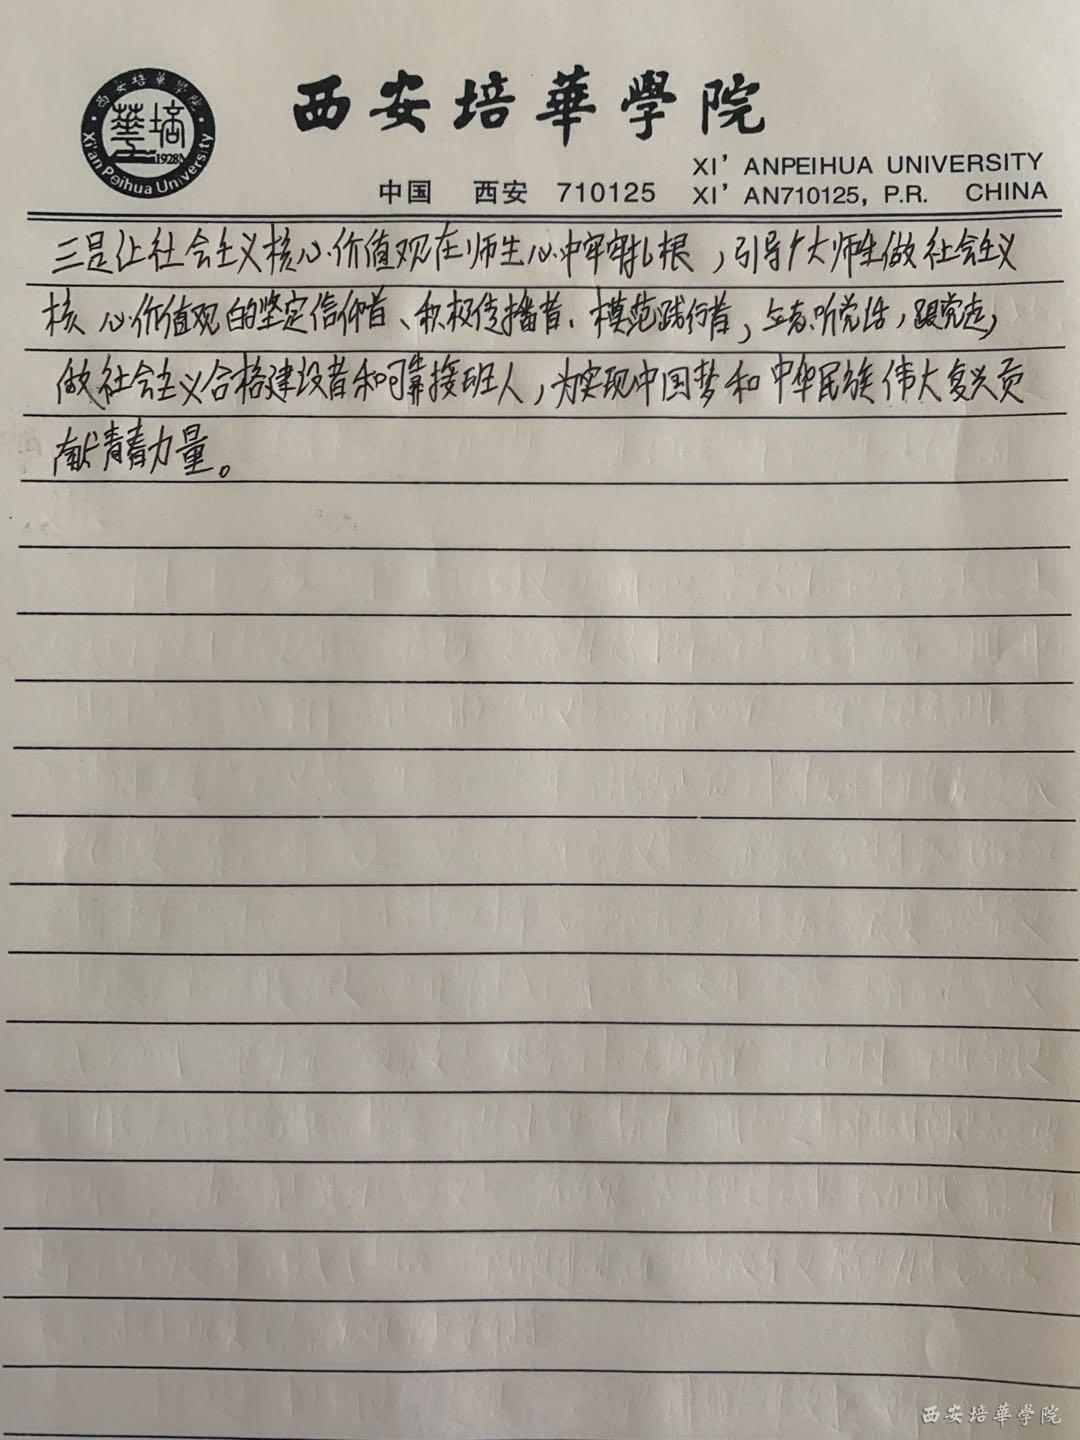 西安培華學院
华培
1928
Xi'an Peihua University
西安培華學院
XI' ANPEIHUA UNIVERSITY
中国 西安 710125 XI' AN710125, P.R. CHINA
三是让社会主义核心价值观在师生心中牢牢扎根，引导广大师生做社会主义
核心价值观的坚定信仰者、积极传播者、模范践行者，听党话，跟党走，
做社会主义合格建设者和可靠接班人，为实现中国梦和中华民族伟大复兴贡
献青春力量。
西安培華学院